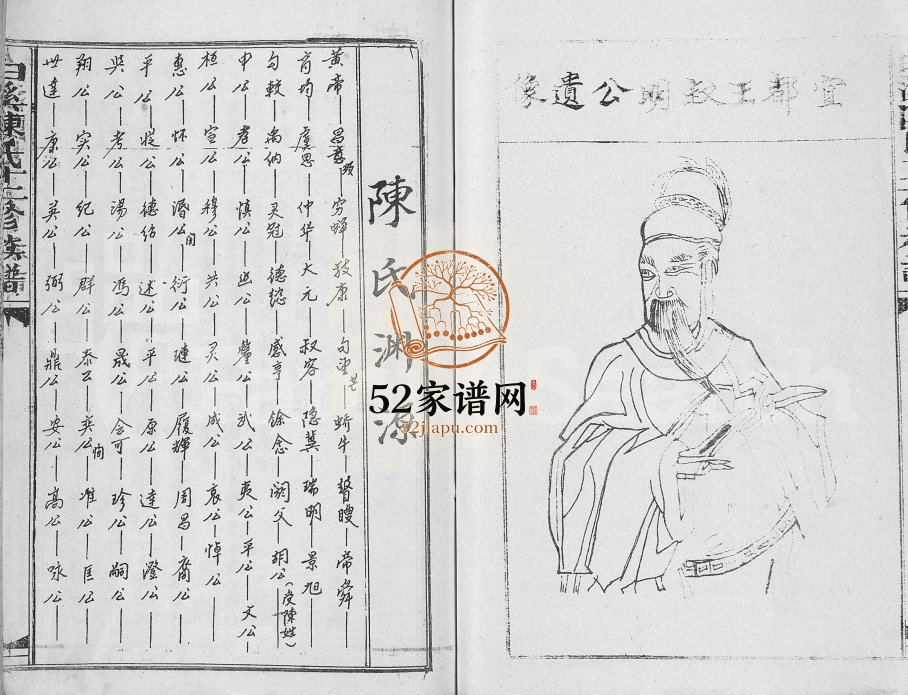 宜都王叔明公遺像
陳氏渊源
黄帝——昌意——顼——穷蝉——敬康——句望——芒——蟜牛——瞽瞍——帝舜——
商均——虞思——仲华——大元——叔容——隐冀——瑞明——景旭
勾較——禹纳——灵冠——德懿——感亨——馀念——阏父——胡公(受陳姓)——
申公——孝公——慎公——幽公——釐公——武公——夷公——平公——文公——
桓公——宣公——穆公——共公——灵公——成公——哀公——悼公
惠公——怀公——湣公——閧——衍公——琏公——履輝——周昌——裔公——
平公——従公——德公——述公——平公——原公——達公——澄公——
吳公——考公——湯公——馮公——晟公——会可——珍公——嗣公——
翔公——实公——纪公——群公——泰公——奕公——恂——准公——匡公——
世達——康公——英公——弼公——鼎公——安公——高公——咏公——
白溪陳氏十二修族譜
52家谱网
52jiapu.com